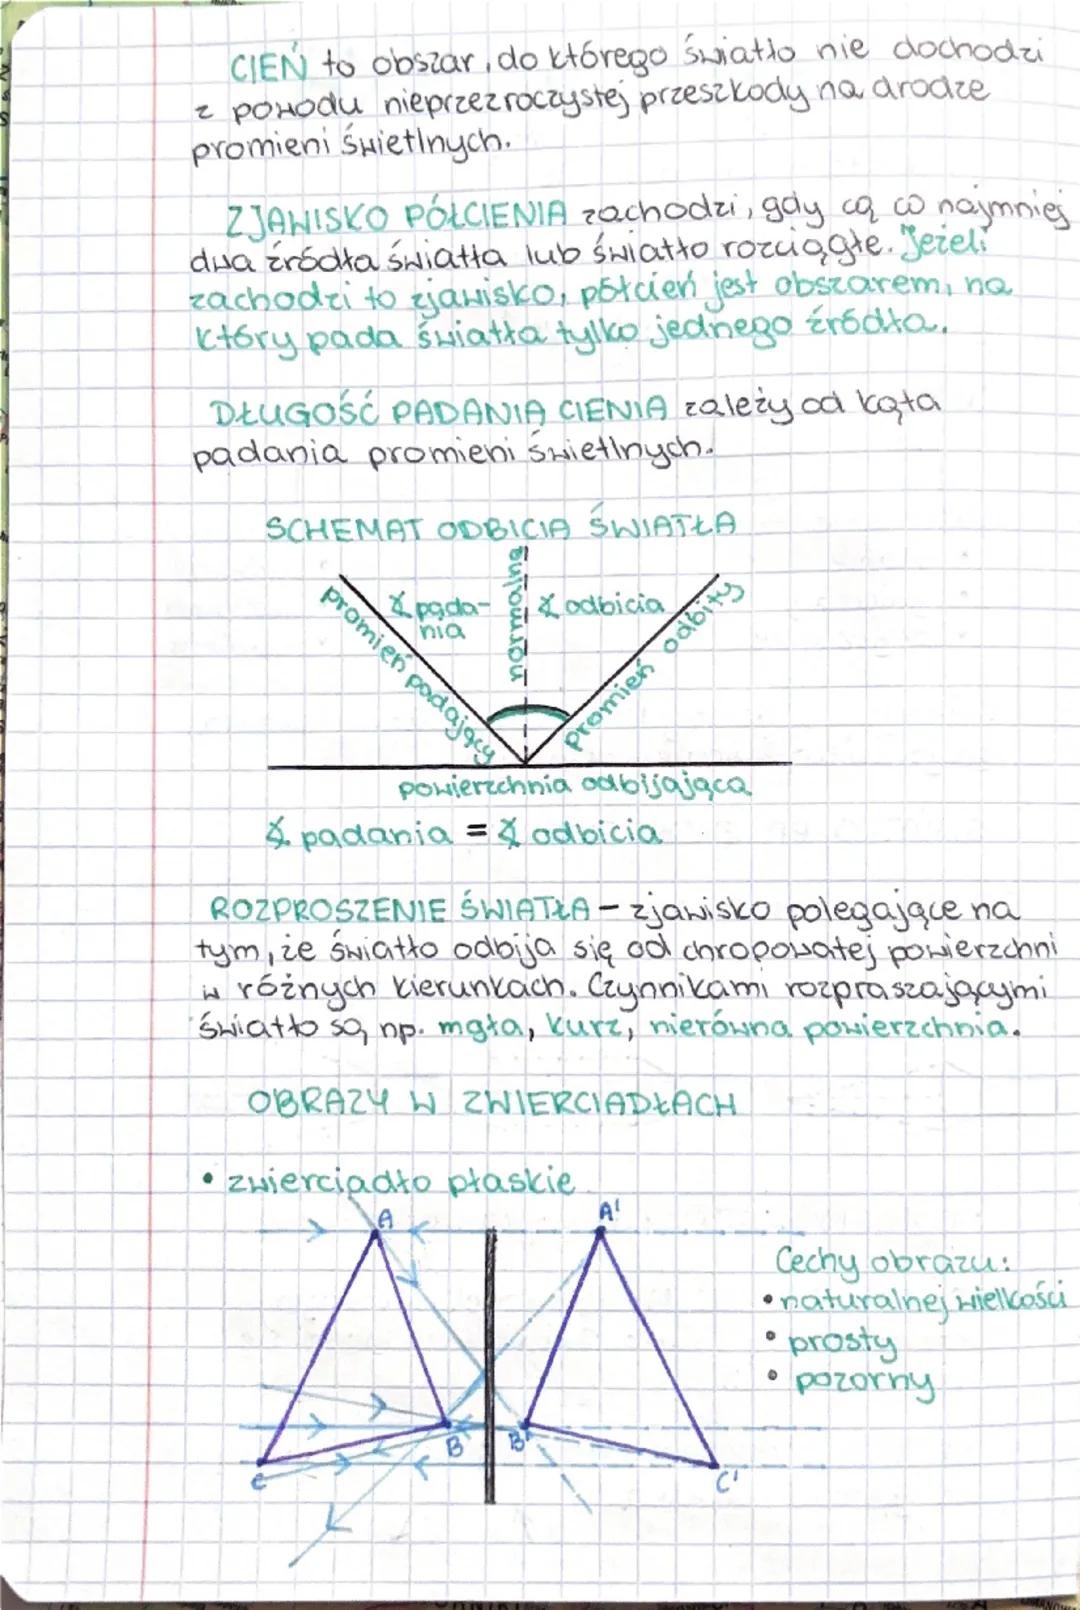 CIEŃ to obszar, do którego światło nie dochodzi
z powodu nieprzezroczystej przeszkody na drodze
promieni świetlnych.
ZJAWISKO PÓŁCIENIA zachodzi, gdy cą co najmniej
dwa źródła światła lub światło rozciągłe. Jeżeli
zachodzi to zjawisko, półcień jest obszarem, na
który pada światła tylko jednego źródła.
DŁUGOŚĆ PADANIA CIENIA zależy od kąta
padania promieni świetlnych.
SCHEMAT ODBICIA ŚWIATŁA
promień padający
∡ pada-
nia
normalna
∡ odbicia
promień odbity
powierzchnia odbijająca
∡ padania = ∡ odbicia
ROZPROSZENIE ŚWIATŁA – zjawisko polegające na
tym, że światło odbija się od chropowatej powierzchni
w różnych kierunkach. Czynnikami rozpraszającymi
światło są np. mgła, kurz, nierówna powierzchnia.
OBRAZY W ZWIERCIADŁACH
• zwierciadło płaskie
A
A'
Cechy obrazu:
• naturalnej wielkości
• prosty
• pozorny
B
B'
C
C'